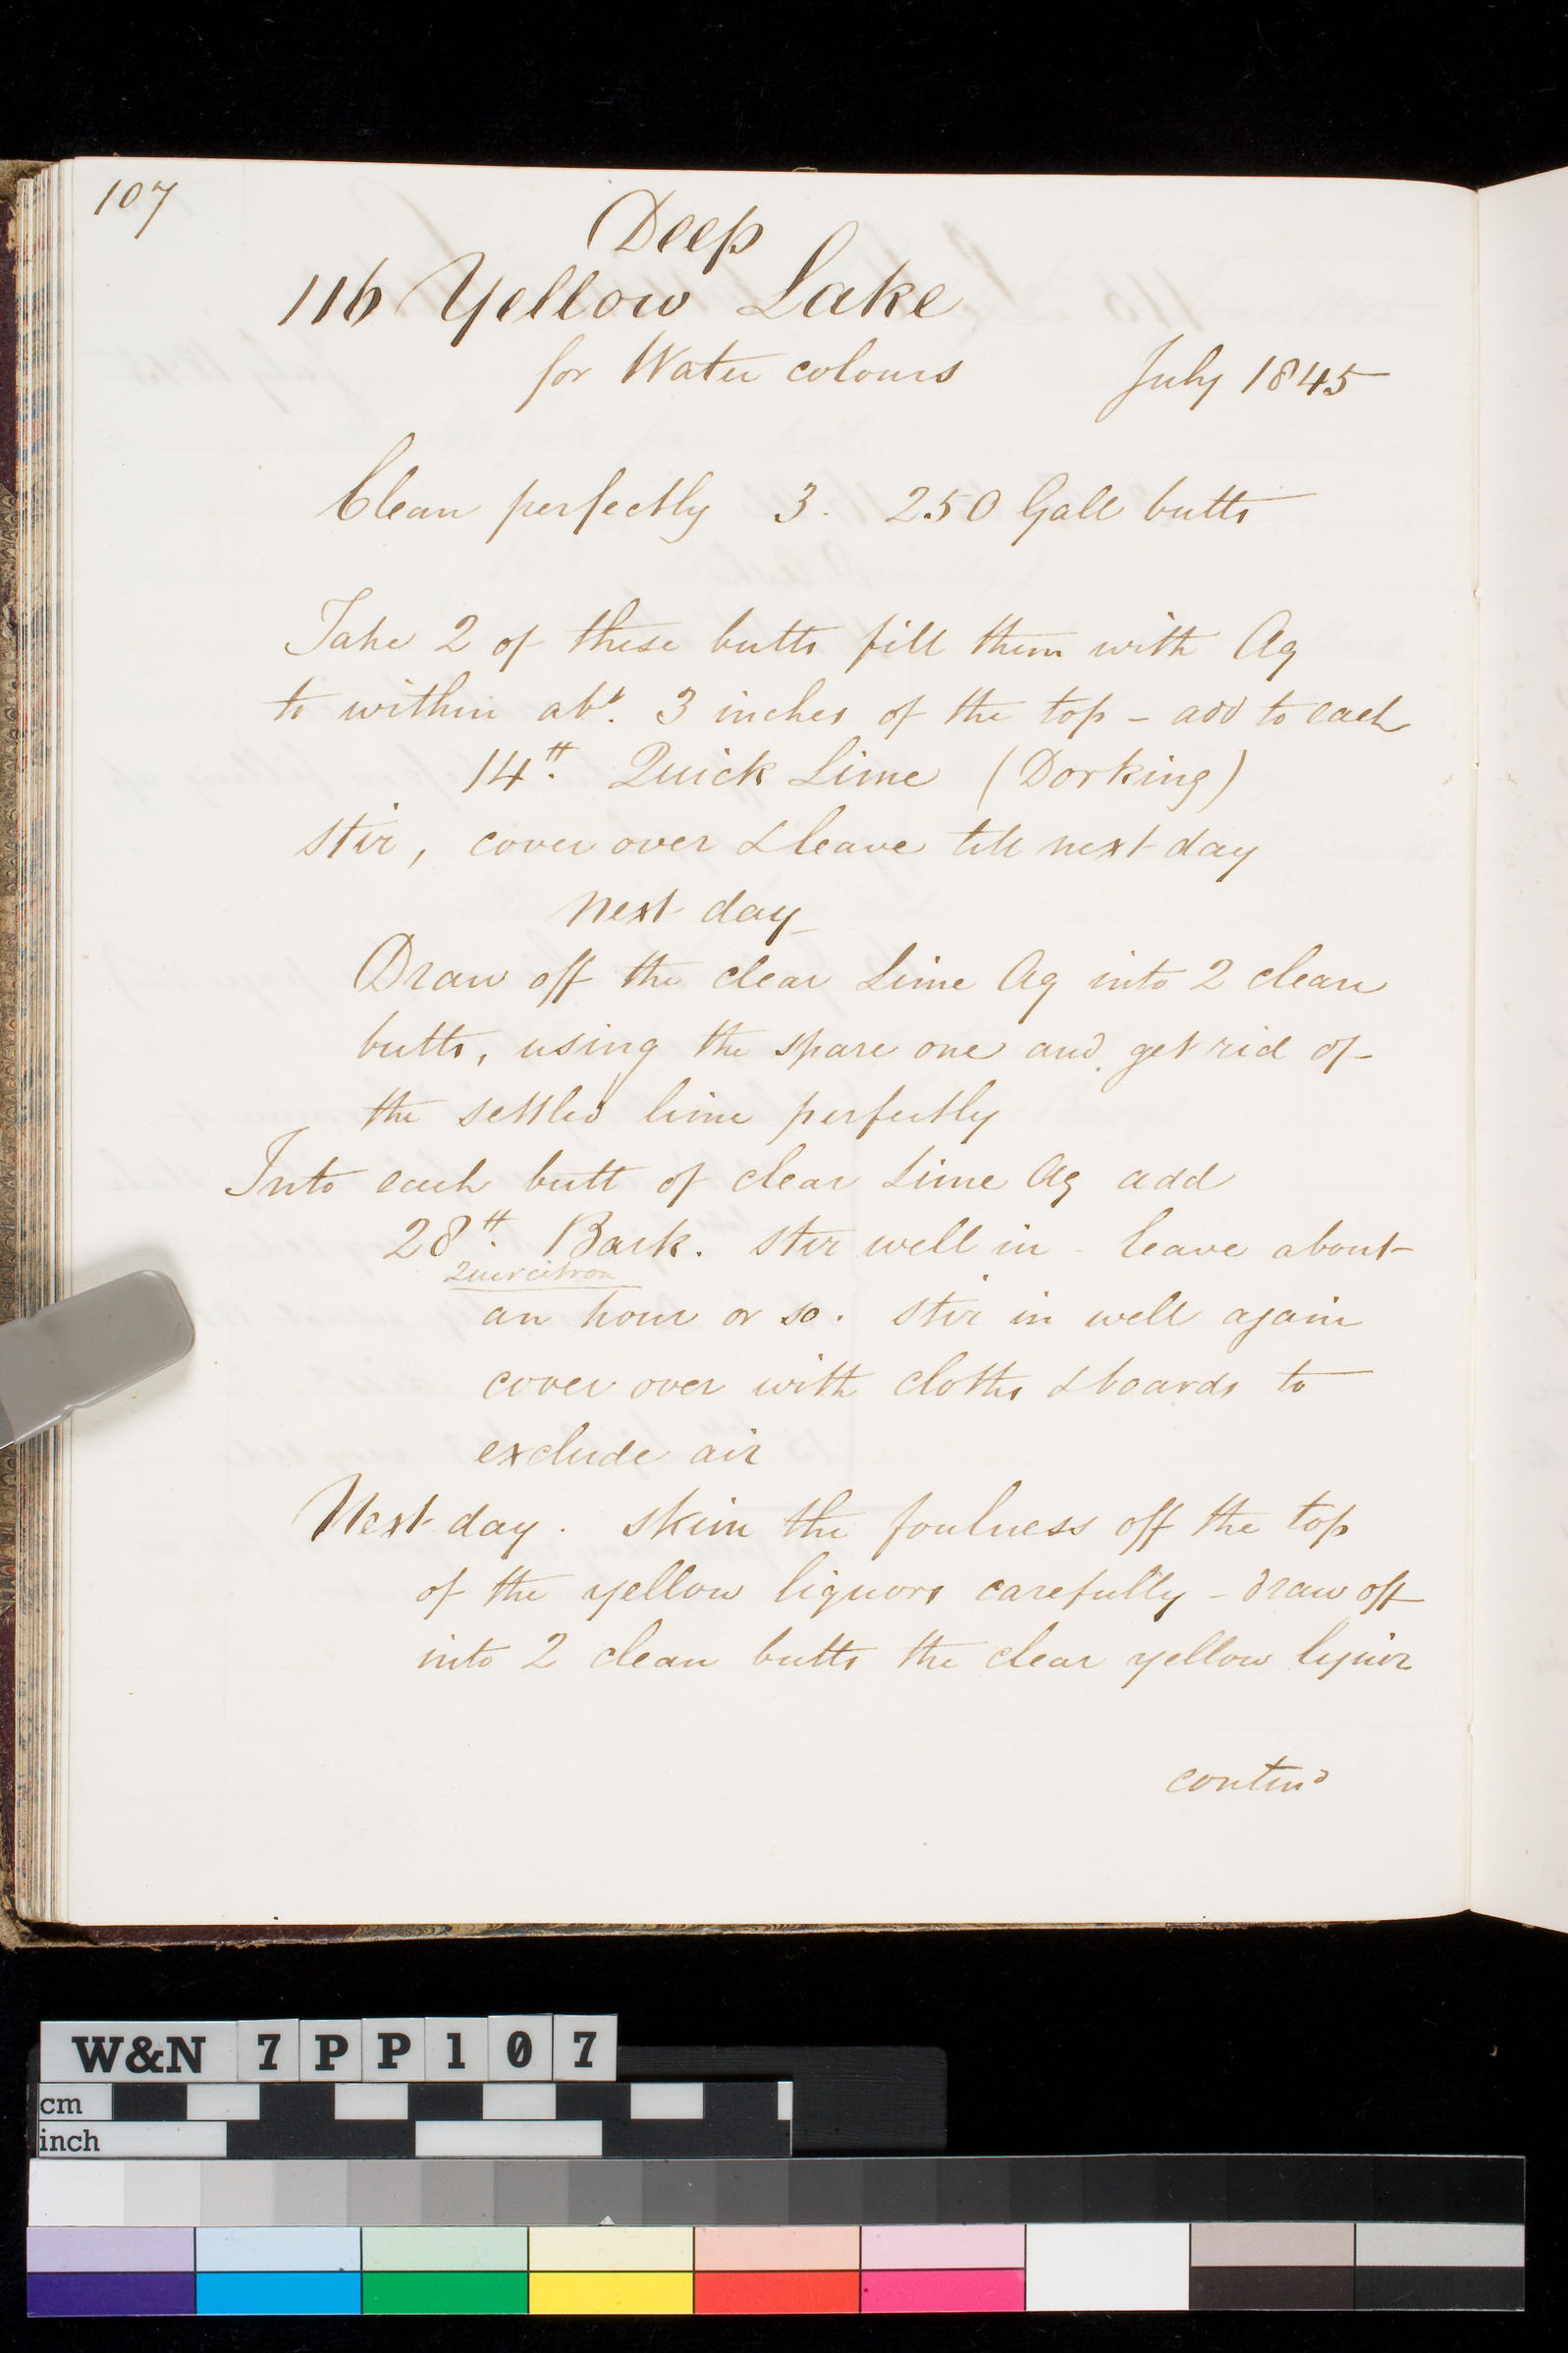 107
Deep
116 Yellow Lake
for Water colours July 1845
Clean perfectly 3. 250 Gall butts
Take 2 of these butts fill them with Aq
to within abt. 3 inches of the top - add to each
14 tt. Quick Lime (Dorking)
stir, cover over & leave till next day
Next day
Draw off the clear Lime Aq into 2 clean
butts, using the spare one and get rid of
the settled lime perfectly
Into each butt of clear Lime Aq add
28 tt. Bark. stir well in - leave about
Quercitron
an hour or so. stir in well again
cover over with cloths & boards to
exclude air
Next day. skim the foulness off the top
of the yellow liquors carefully - draw off
into 2 clean butts the clear yellow liquor
contind
W&N 7PP107
cm
inch